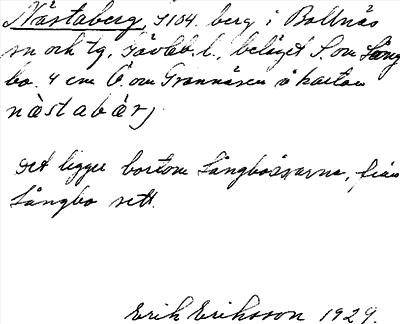 Nästaberg, S104. berg i Bollnäs
sn och tg, Gävleb. l., beläget S. om Lång
bo. 4 cm V. om Grannäsen å kartan
näs t a b æ̀ r j
Det ligger bortom Långboåsarna, från
Långbo sett.
Erik Eriksson 1929.